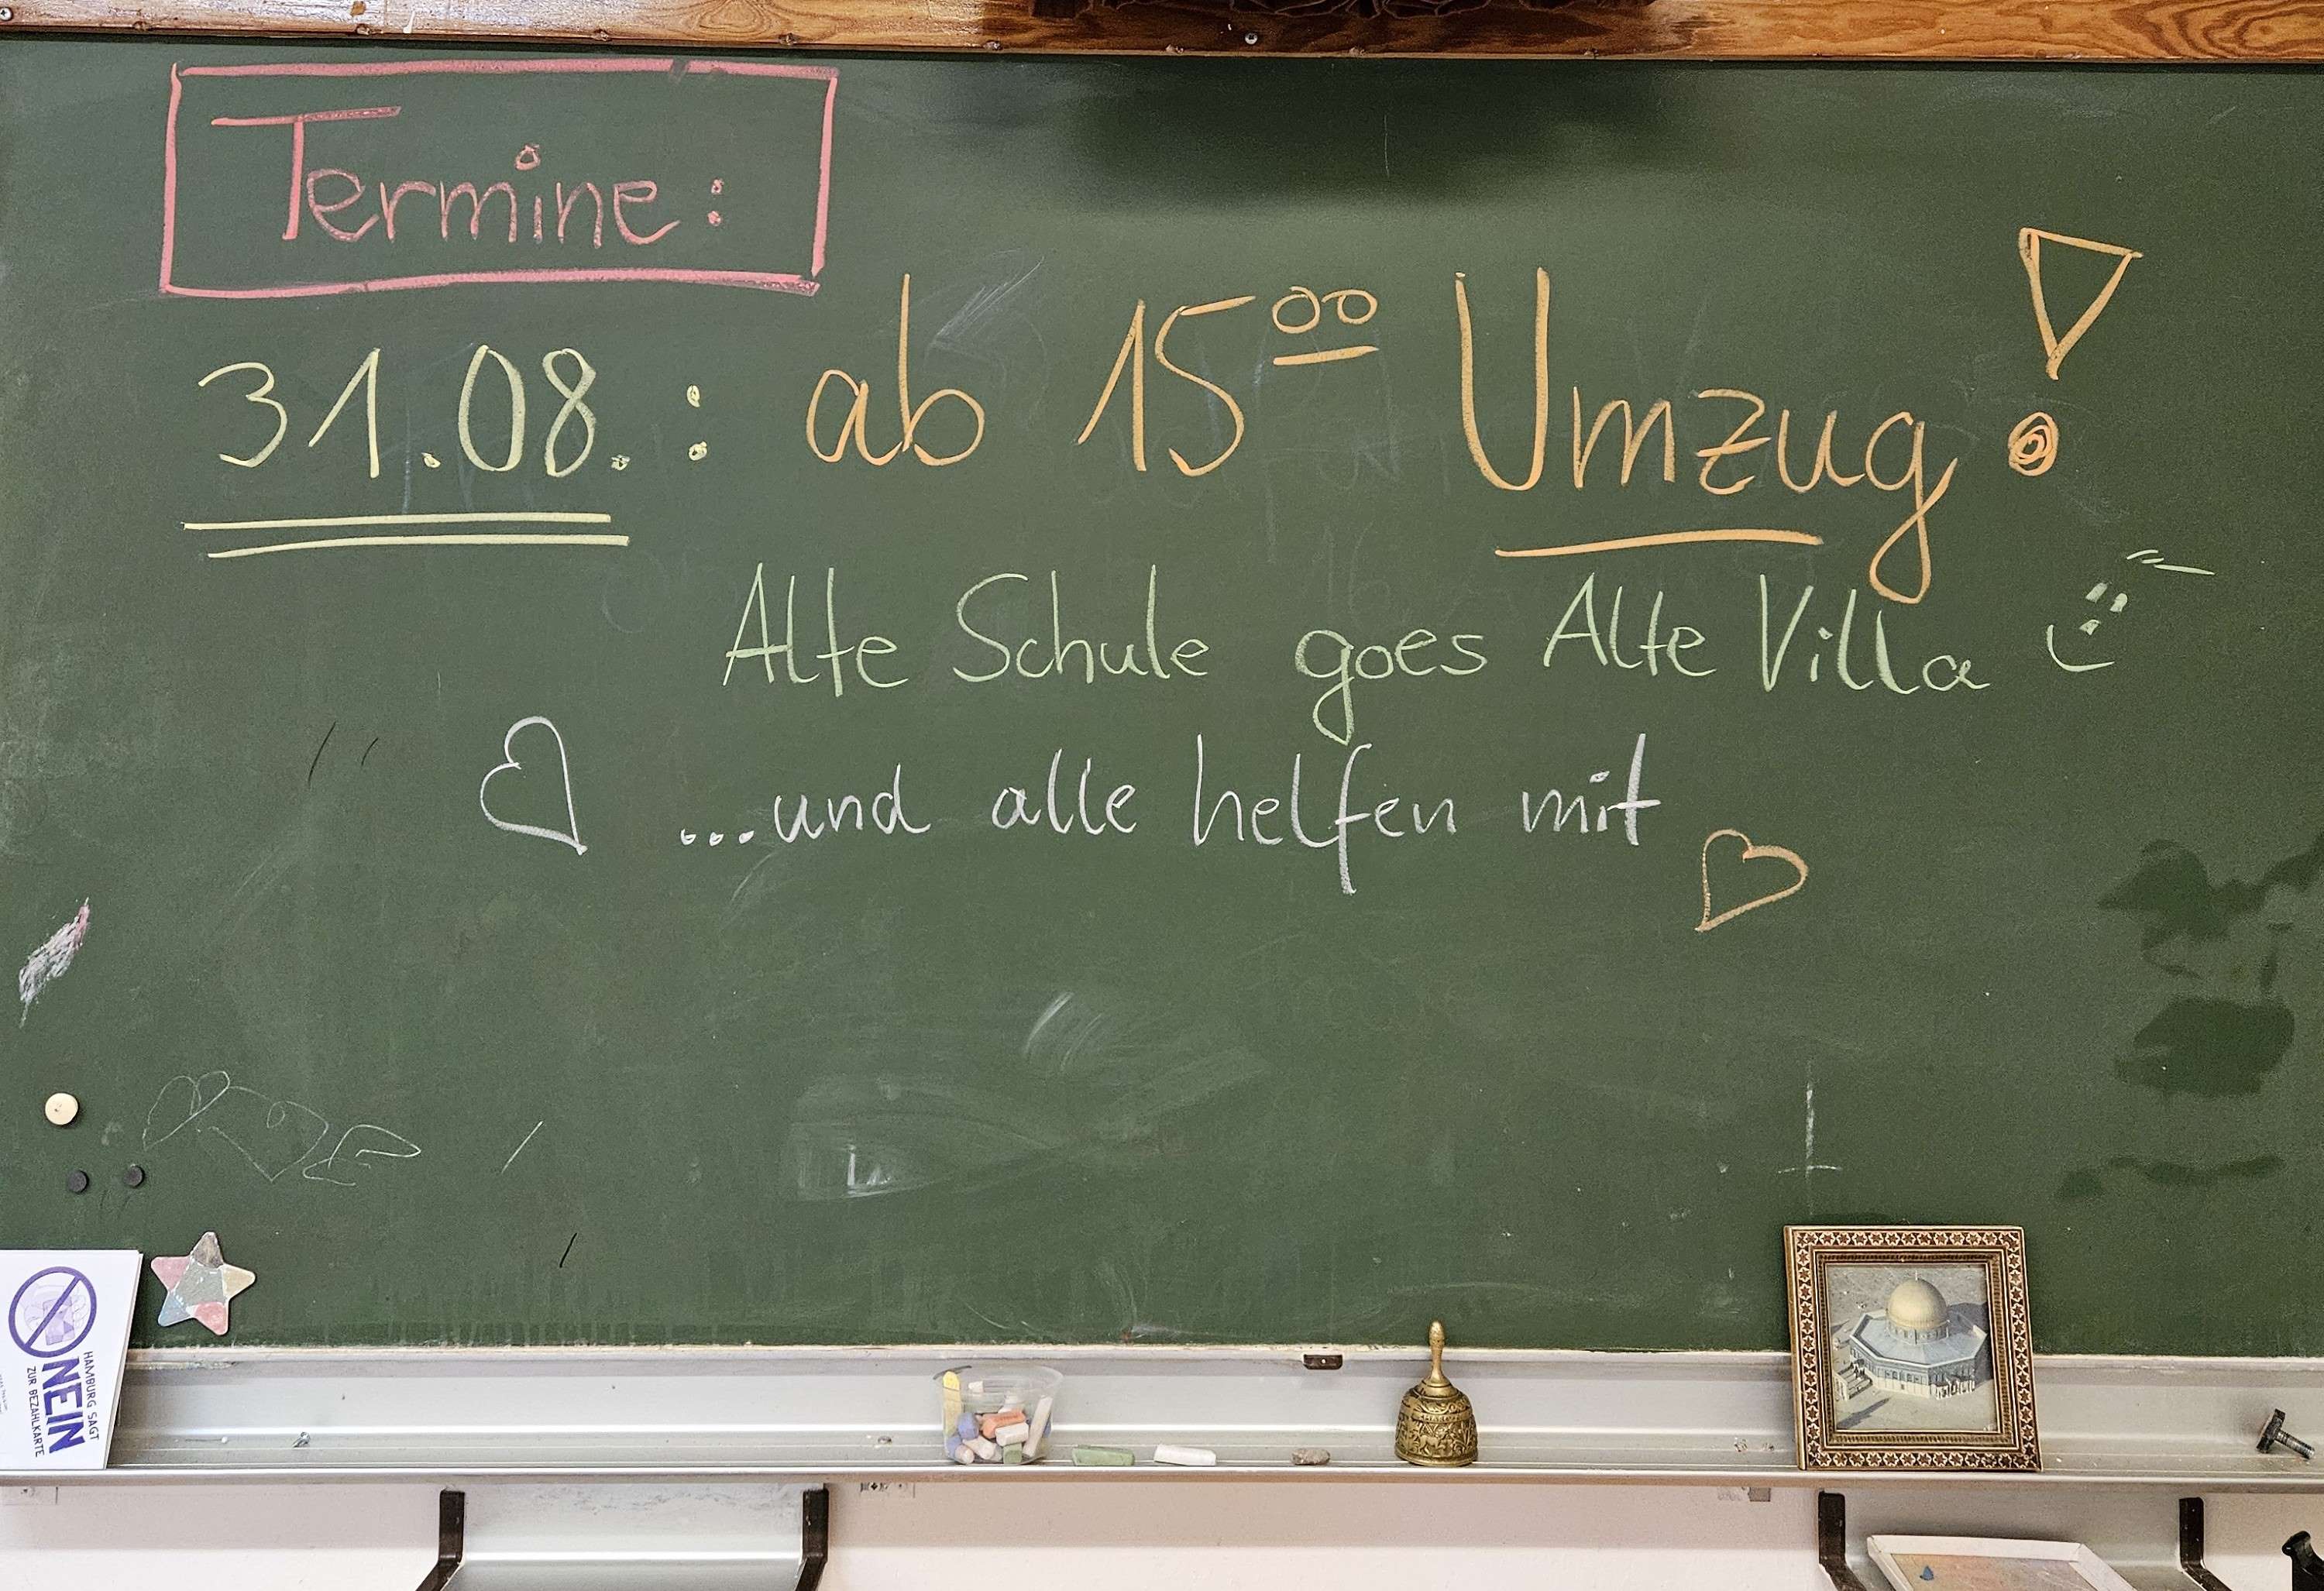 Termine:
31.08.: ab 15 00 Umzug!
Alte Schule goes Alte Villa
...und alle helfen mit
HAMBURG SAGT
NEIN
ZUR BEZAHLKARTE